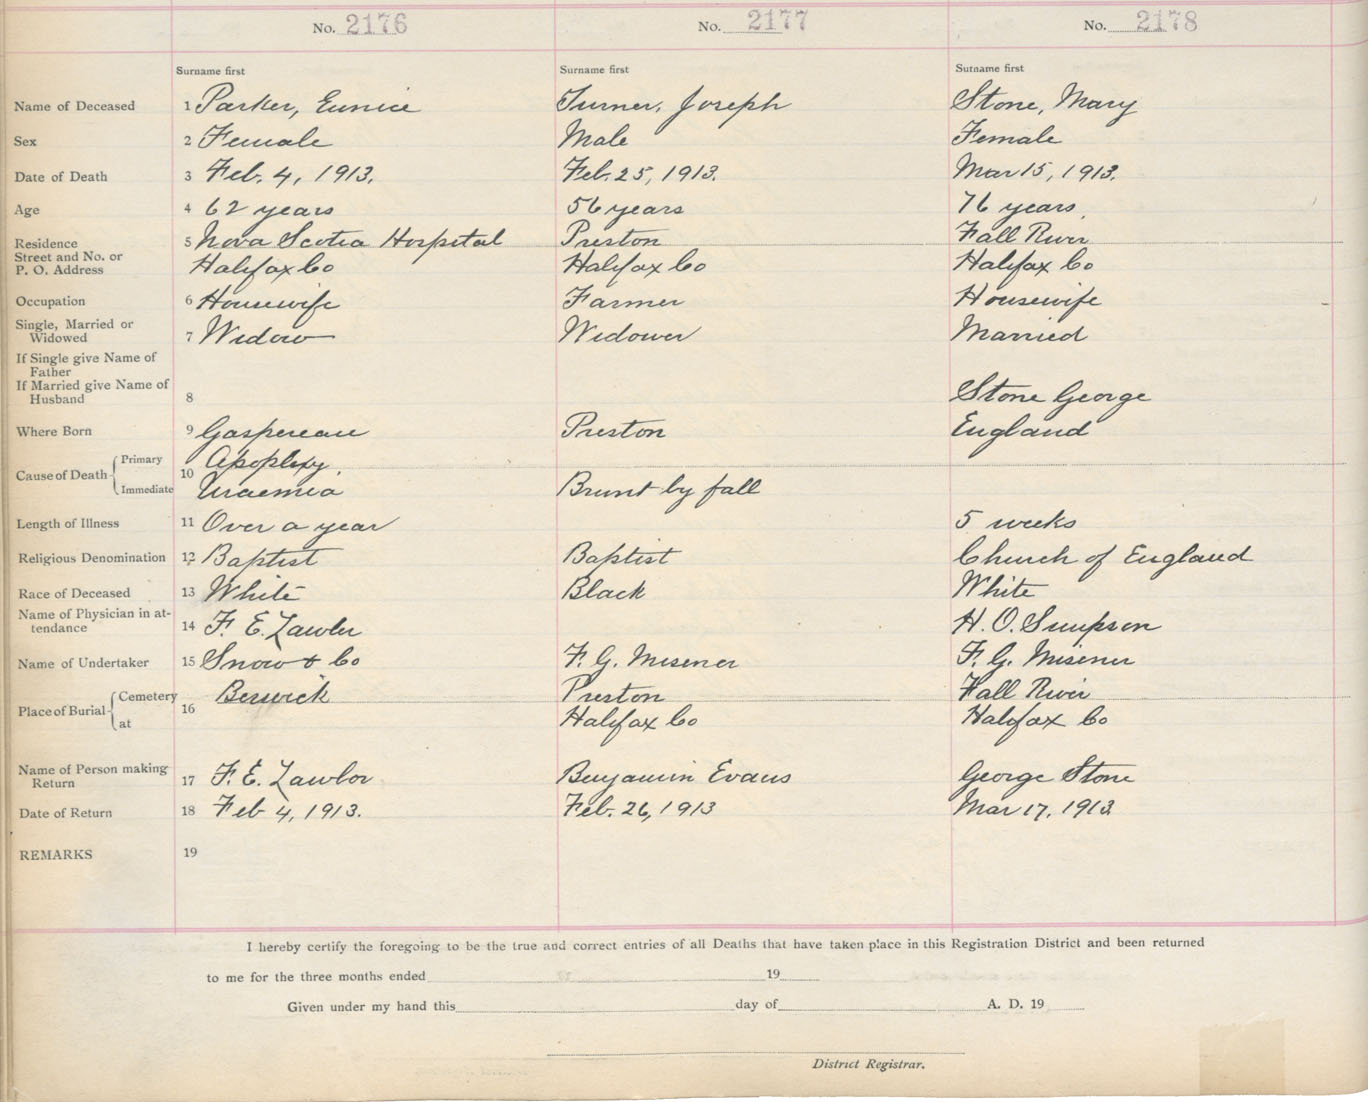 No. 2176 No. 2177 No. 2178
Surname first Surname first Surname first
Name of Deceased 1 Parker, Eunice Turner, Joseph Stone, Mary
Sex 2 Female Male Female
Date of Death 3 Feb. 4, 1913. Feb. 25, 1913. Mar 15, 1913.
Age 4 62 years 56 years 76 years
Residence 5 Nova Scotia Hospital Preston Fall River
Street and No. or
P. O. Address Halifax Co Halifax Co Halifax Co
Occupation 6 Housewife Farmer Housewife
Single, Married or
Widowed 7 Widow Widower Married
If Single give Name of
Father
If Married give Name of
Husband 8 Stone George
Where Born 9 Gaspereau Preston England
Cause of Death 10 Primary Apoplexy.
Immediate Uraemia Brunt by fall
Length of Illness 11 Over a year 5 weeks
Religious Denomination 12 Baptist Baptist Church of England
Race of Deceased 13 White Black White
Name of Physician in at-
tendance 14 F. E. Lawlor H. O. Simpson
Name of Undertaker 15 Snow & Co F. G. Misener F. G. Misener
Place of Burial 16 Cemetery Berwick Preston Fall River
at Halifax Co Halifax Co
Name of Person making
Return 17 F. E. Lawlor Benjamin Evans George Stone
Date of Return 18 Feb 4, 1913. Feb. 26, 1913 Mar 17, 1913
REMARKS 19
I hereby certify the foregoing to be the true and correct entries of all Deaths that have taken place in this Registration District and been returned
to me for the three months ended 19
Given under my hand this day of A. D. 19
District Registrar.